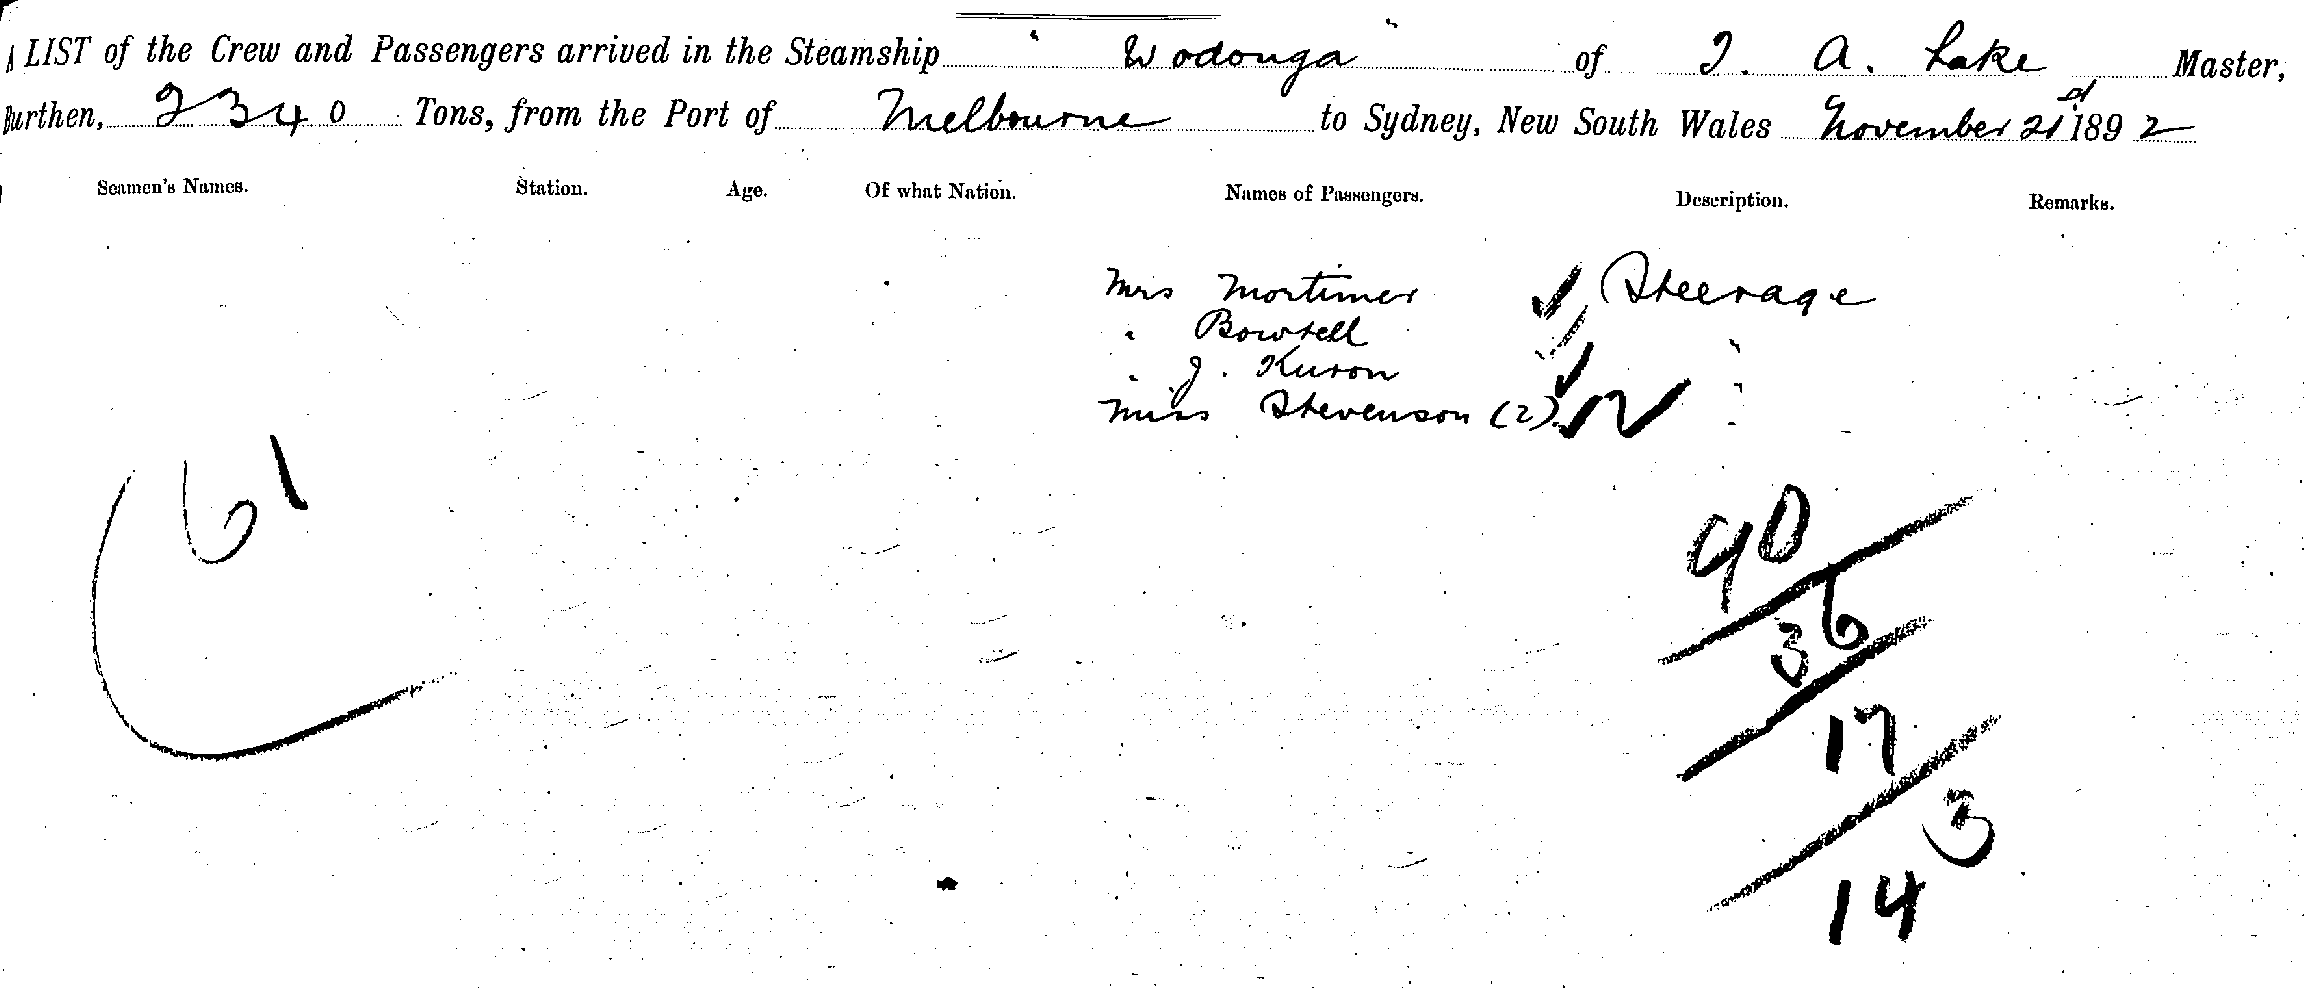 A LIST of the Crew and Passengers arrived in the Steamship " Wodonga " of J. A. Lake Master,
Burthen, 2340 Tons, from the Port of Melbourne to Sydney, New South Wales November 21st 1892
Seamen's Names. Station. Age. Of what Nation. Names of Passengers. Description. Remarks.
Mrs Mortimer Steerage
" Bowtell "
" J. Kuron "
Miss Stevenson (2) "
61
90
36
17
3
14